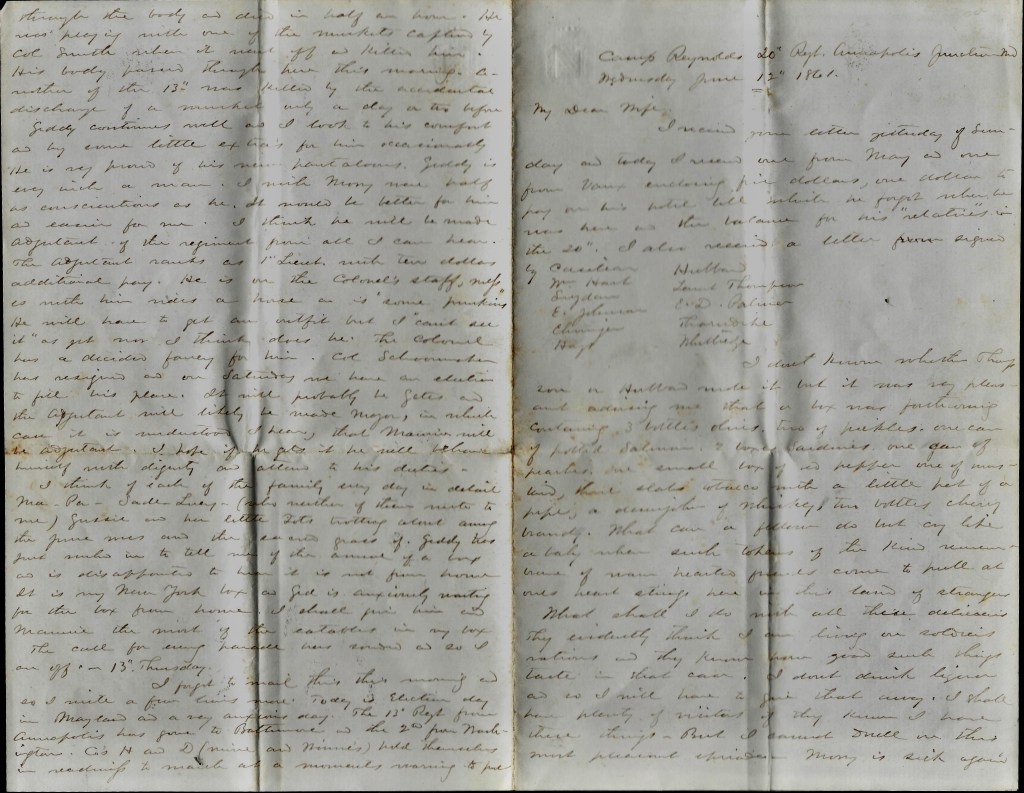 Camp Reynolds 20th Regt. Annapolis Junction Md
Wednesday June 12th 1861.
My Dear Wife,
I received your letter yesterday of Sun-
day and today I received one from May and one
from Vaux enclosing five dollars, one dollar to
pay on his hotel bill which he forgot when he
was here and the balance for his "relatives in
the 20th". I also received a letter from signed
by
Wm Hart
Suydam
E. Johnson
Hays
Hubbard
Thompson
E. D. Palmer
Thorndike
I don't know whether Thomp
son or Hubbard wrote it but it was very pleas-
ant advising me that a box was forthcoming
containing 3 bottles olives, two of pickles, one can
of potted salmon, 2 box sardines one can of
peaches, one small box of red pepper one of mus-
tard, three slabs tobacco with a little pet of a
pipe, a demijohn of whiskey, two bottles cherry
brandy. What can a fellow do but cry like
a baby when such tokens of the kind remem-
brance of warm hearted friends come to pull at
ones heart strings here in this land of strangers
What shall I do with all these delicacies
they evidently think I am living on soldiers
rations and they know how good such things
taste in that case. I dont drink liquor
and so I will have to give that away. I shall
have plenty of visitors if they know I have
these things - But I cannot dwell on this
most pleasant Mony is sick again
through the body and died in half an hour. He
was playing with one of the muskets captured by
Col Smith when it went off and killed him
His body passed through here this morning. A-
nother of the 13th was killed by the accidental
discharge of a musket only a day or two before
Giddy continues well and I look to his comfort
and buy some little extras for him occasionally
He is very proud of his new pantaloons. Giddy is
every inch a man. I wish Mony were half
as conscientious as he. It would be better for him
and easier for me. I think he will be made
Adjutant of the regiment from all I can hear.
The Adjutant ranks as 1st Lieut. with ten dollars
additional pay. He is on the Colonel's staff, messes
with him rides a horse and is "some punkins"
He will have to get an outfit but I "cant see
it" as yet nor I think does he. The Colonel
has a decided fancy for him. Col Schoonmaker
has resigned and on Saturday we have an election
to fill his place. It will probably be Gates and
the Adjutant will likely be made Major, in which
case it is understood, I hear, that Mannie will
be adjutant. I hope if he gets it he will behave
himself with dignity and attend to his duties -
I think of each of the family every day in detail
Ma - Pa - Sade Lucy - (why neither of them wrote to
me) Gussie and her little Dots trotting about among
the pine trees and the grass of. Giddy has
just rushed in to tell me of the arrival of a box
and is disappointed to hear it is not from home
It is my New York box and Gid is anxiously waiting
for the box from home. I shall give him and
Mannie the most of the eatables in my box
The call for evening parade has sounded and so I
am off - 13th Thursday.
I forgot to mail this this morning and
so I write a few lines more. Today is Election day
in Maryland and a very anxious day. The 13th Regt from
Annapolis has gone to Baltimore and the 2nd from Wash-
ington. Co's H and D (mine and Winnies) hold themselves
in readiness to march at a moments warning to put